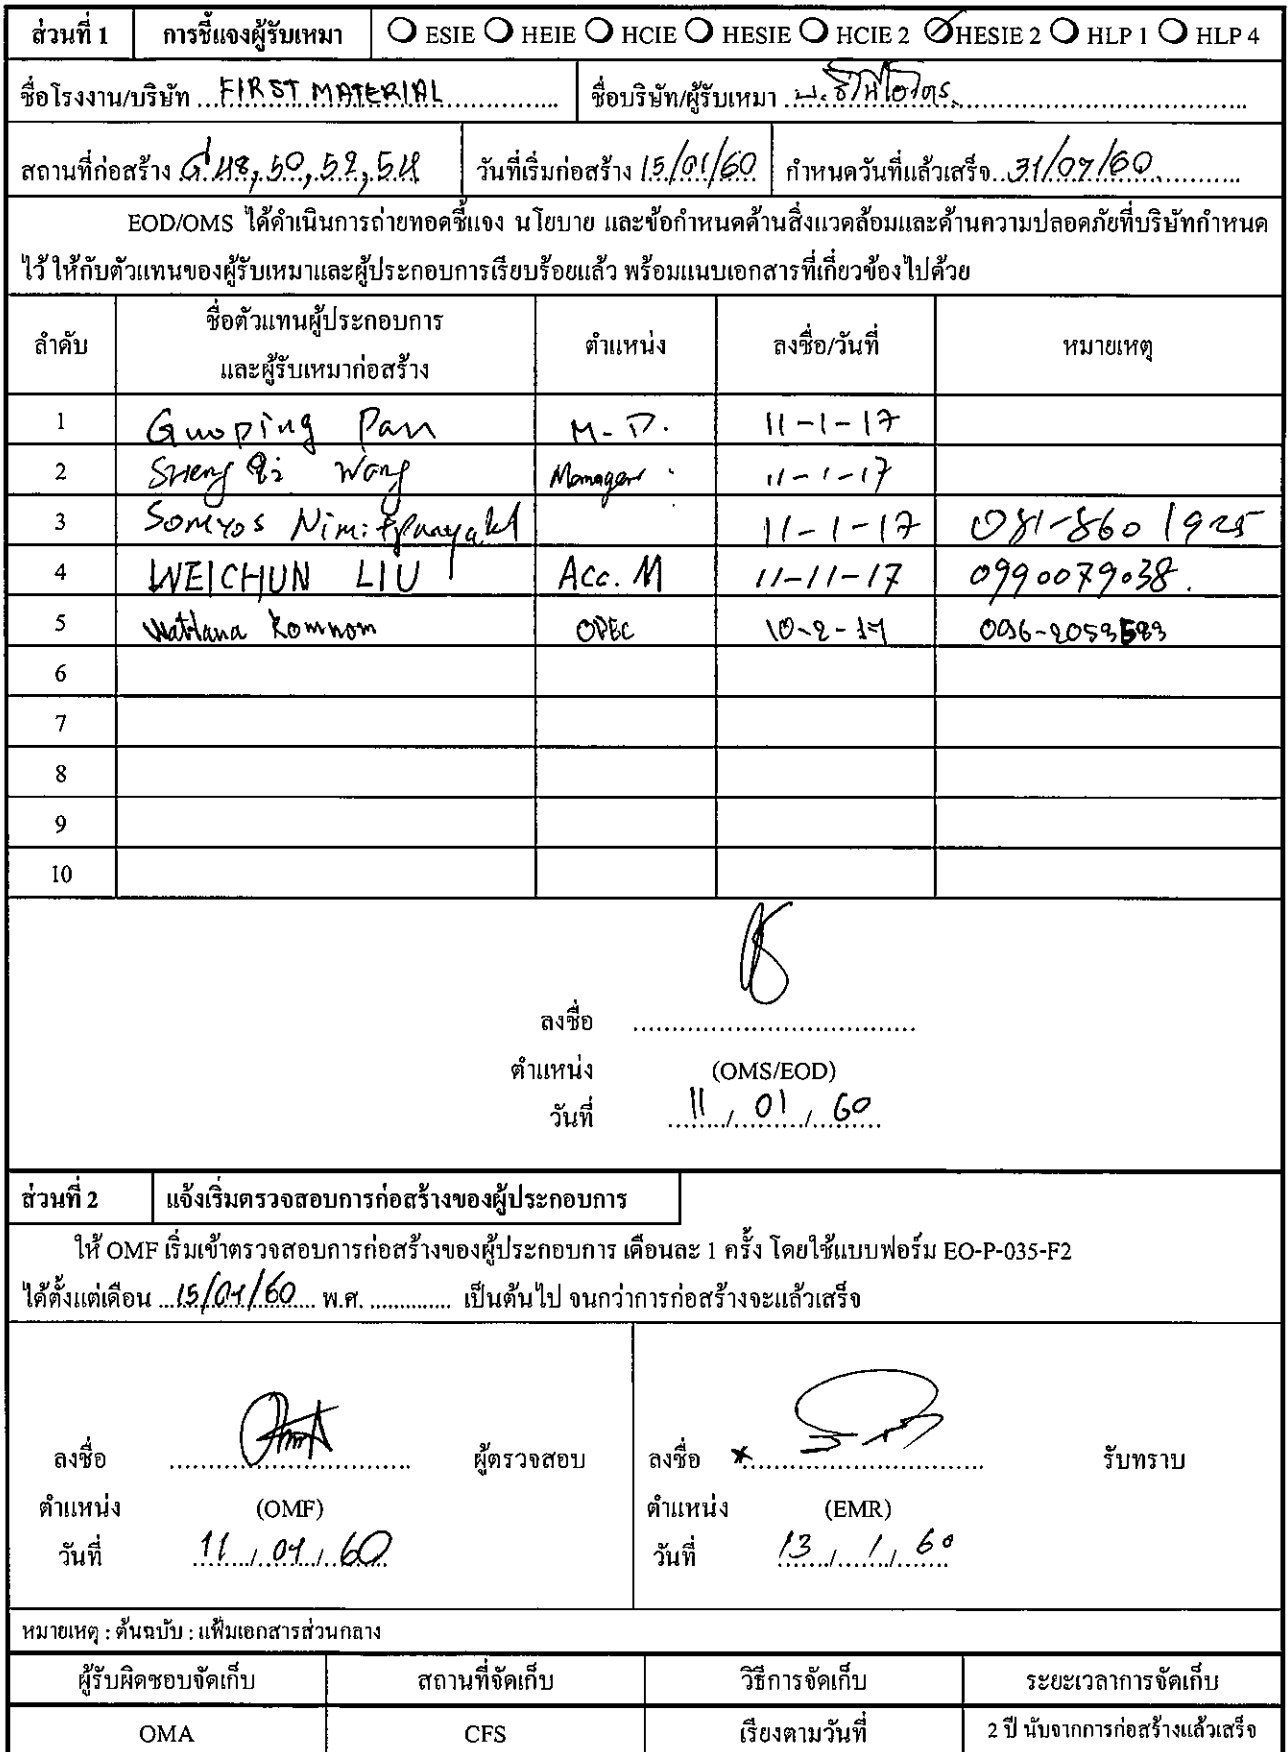 ส่วนที่ 1 การชี้แจงผู้รับเหมา ESIE HEIE HCIE HESIE HCIE 2 HESIE 2 HLP 1 HLP 4
ชื่อโรงงาน/บริษัท FIRST MATERIAL ชื่อบริษัท/ผู้รับเหมา
สถานที่ก่อสร้าง G 48, 50, 52, 54 วันที่เริ่มก่อสร้าง 15/01/60 กำหนดวันที่แล้วเสร็จ 31/07/60
EOD/OMS ได้ดำเนินการถ่ายทอดชี้แจง นโยบาย และข้อกำหนดด้านสิ่งแวดล้อมและด้านความปลอดภัยที่บริษัทกำหนด
ไว้ ให้กับตัวแทนของผู้รับเหมาและผู้ประกอบการเรียบร้อยแล้ว พร้อมแนบเอกสารที่เกี่ยวข้องไปด้วย
ลำดับ ชื่อตัวแทนผู้ประกอบการ และผู้รับเหมาก่อสร้าง ตำแหน่ง ลงชื่อ/วันที่ หมายเหตุ
1 Guoping Pan M.D. 11-1-17
2 Sheng Qi Wang Manager 11-1-17
3 Somyos 11-1-17 081-860 1925
4 WEICHUN LIU Acc. M 11-11-17 0990079038.
5 Wattana Komnom OPEC 10-2-17
6
7
8
9
10
ลงชื่อ
ตำแหน่ง (OMS/EOD)
วันที่ 11 / 01 / 60
ส่วนที่ 2 แจ้งเริ่มตรวจสอบการก่อสร้างของผู้ประกอบการ
ให้ OMF เริ่มเข้าตรวจสอบการก่อสร้างของผู้ประกอบการ เดือนละ 1 ครั้ง โดยใช้แบบฟอร์ม EO-P-035-F2
ได้ตั้งแต่เดือน 15/01/60 พ.ศ. .............. เป็นต้นไป จนกว่าการก่อสร้างจะแล้วเสร็จ
ลงชื่อ ผู้ตรวจสอบ ลงชื่อ รับทราบ
ตำแหน่ง (OMF) ตำแหน่ง (EMR)
วันที่ 11 / 01 / 60 วันที่ 13 / 1 / 60
หมายเหตุ : ต้นฉบับ : แฟ้มเอกสารส่วนกลาง
ผู้รับผิดชอบจัดเก็บ สถานที่จัดเก็บ วิธีการจัดเก็บ ระยะเวลาการจัดเก็บ
OMA CFS เรียงตามวันที่ 2 ปี นับจากการก่อสร้างแล้วเสร็จ